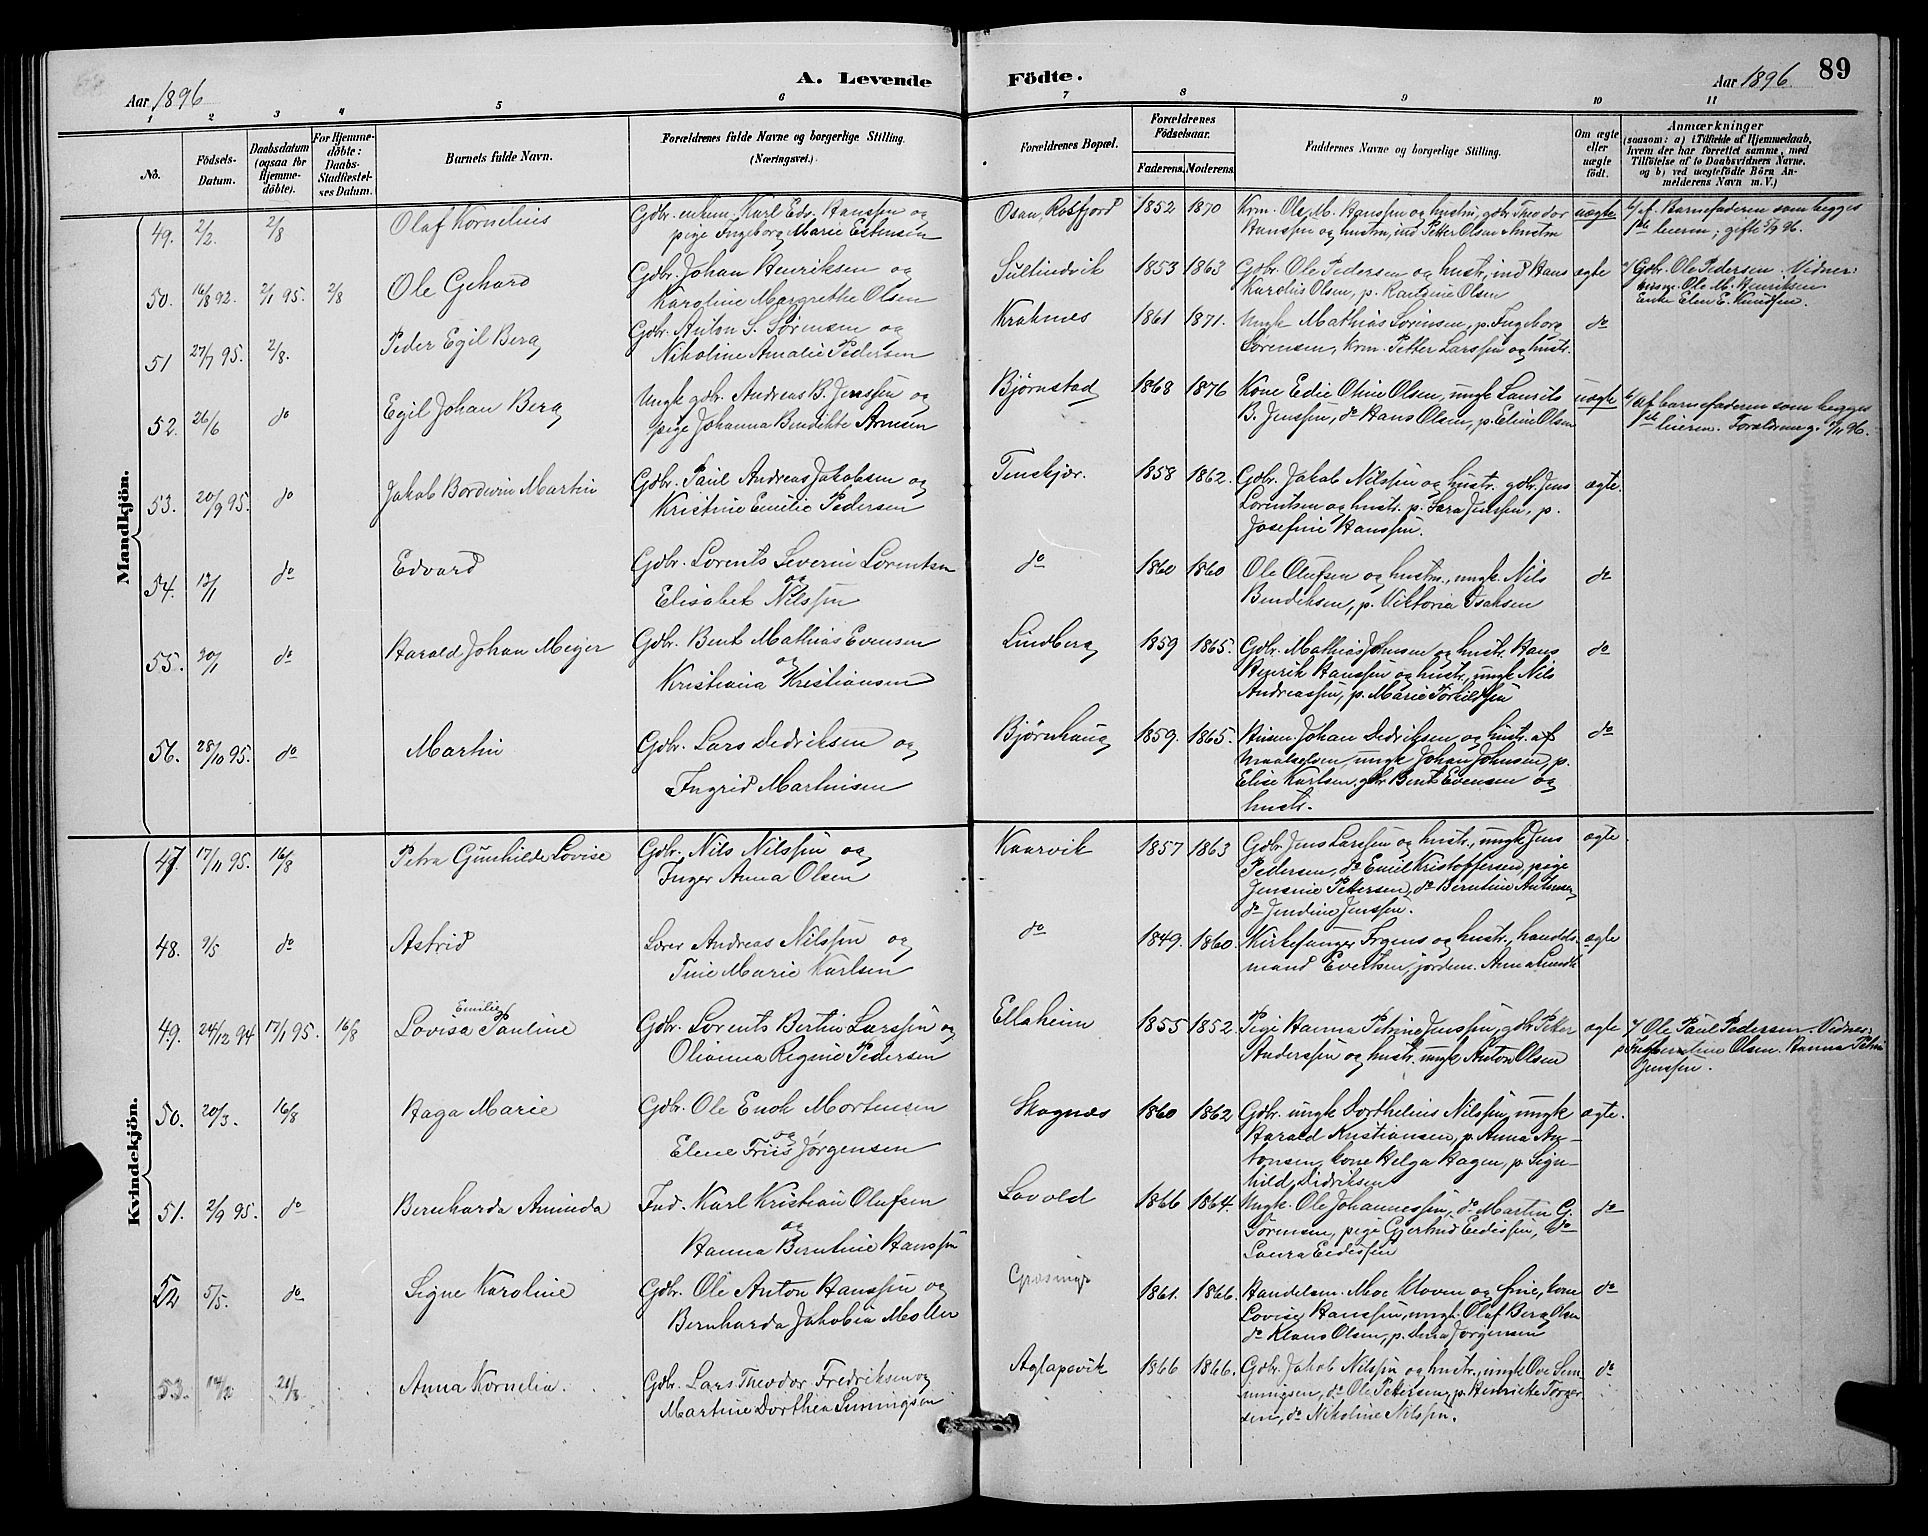 A. Levende Födte.
89
Aar 1896
Aar 1896.
1 2 3 4 5 6 7 8 9 10 11
No.
Födsels-Datum.
Daabsdatum (ogsaa for Hjemme-döbte).
For Hjemme-döbte: Daabs-Stadfæstel-ses Datum.
Barnets fulde Navn.
Forældrenes fulde Navne og borgerlige Stilling. (Næringsvei.)
Forældrenes Bopæl.
Forældrenes Födselsaar.
Faderens. Moderens.
Faddernes Navne og borgerlige Stilling.
Om ægte eller uægte födt.
Anmærkninger
(saasom: a) i Tilfælde af Hjemmedaab, hvem der har forrettet samme, med Tilföielse af to Daabsvidners Navne, og b) ved uægtefödte Börn An-melderens Navn m. V.)
Mandkjön.
49. 2/2. 2/8 Olaf Kornelius
Gdbr. enkem. Karl Edv. Hanssen og
pige Ingeborg Marie Estensen
Osan, Rosfjord 1852 1870
Krm. Ole M. Hanssen og hustru, gdbr. Theodor
Hanssen og hustru, ind. Petter Olsen & hustru
uægte
b/ af Barnefaderen som begges
1ste leierm; gifte 5/9 96.
50. 16/8 92. 2/1 95. 2/8 Ole Gehard
Gdbr. Johan Henriksen og
Karoline Margrethe Olsen
Sultindvik 1853 1863
Gdbr. Ole Pedersen og hustr., ind Hans
Karelius Olsen, p. Rantine Olsen
ægte
a/ Gdbr. Ole Pedersen. Vidner:
Ole M. Henriksen
Enke Elen E. Knudsen.
51 27/7 95. 2/8. Peder Egil Berg
Gdbr. Anton S. Sørensen og
Nikoline Amalie Pedersen
Kraknes 1861 1871.
Ungk. Mathias Sørensen, p. Ingeborg
Sørensen, Krm. Petter Larssen og hustr.
do
52. 26/6 do Egil Johan Berg
Ungk. gdbr. Andreas B. Jenssen og
pige Johanna Bendikte Arnesen
Bjørnstad 1868 1876
Kone Edie Oline Olsen, ungk. Laurits
B. Jenssen, do Hans Olsen, p. Eline Olsen
uægte
b/ af barnefaderen som begges
1ste leierm.
53. 20/9 95. do Jakob Bordevin Martin
Gdbr. Paul Andreas Jakobsen og
Kristine Emilie Pedersen
Tenskjær. 1858 1862.
Gdbr. Jakob Nilssen og hustr. gdbr. Jens
Lorentsen og hustr. p. Sara Jenssen, p.
Josefine Hanssen.
ægte.
54. 12/1 do Edvard
Gdbr. Lorents Severin Lorentsen
og
Elisabet Nilssen
do 1860 1860
Ole Olufsen og hustru, ungk. Nils
Bendiksen, p. Viktoria Isaksen
do
55. 20/1 do Harald Johan Meyer
Gdbr. Bent Mathias Evensen
og
Kristiana Kristiansen
Lindberg 1859 1865.
Gdbr. Mathias Johnsen og hustr. Hans
Henrik Hanssen og hustr, ungk Nils
Andreassen, p. Marie Torkildsen
do
56. 28/10 95. do Martin
Gdbr. Lars Dedriksen og
Ingrid Martinisen
Bjørnhaug 1859. 1865.
Husm. Johan Dedriksen og hustr. af
Maalselven, ungk Johan Johnsen, p.
Elise Karlsen, gbr. Bent Evensen og
hustr.
do
Kvindekjön.
47. 17/11 95. 16/8 Petra Gunhilde Lovise
Gdbr. Nils Nilssen og
Inger Anna Olsen
Kaarvik 1857 1863
Gdbr. Jens Larssen og hustr., ungk Jens
Pedersen, do Emil Kristoffersen, pige
Jensine Pettersen, do Berntine Antonsen,
do Jendine Jenssen.
ægte.
48. 9/5 do Astrid
Lærer Andreas Nilssen og
Tine Marie Karlsen
do 1849. 1860.
Kirkesanger Irgens og hustr., handels-
mand Evertsen, jordem. Anna Lundh
ægte
49. 24/12 94 17/1 95. 16/8 Lovisa Emilie Pauline
Gdbr. Lorents Bertin Larssen og
Olianna Regine Pedersen
Ellaheim 1855 1852.
Pige Hanna Petrine Jenssen, gdbr Peter
Anderssen og hustr. ungk Anton Olsen
ægte
a/ Ole Paul Pedersen. Vidner:
Olsen. Hanna Petrine
Jenssen.
50. 20/3. 16/8 Haga Marie
Gdbr. Ole Enok Mortensen
og
Elene Friis Jørgensen
Skognes 1860 1862
Gdbr. ungk Dorthelius Nilssen, ungk
Harald Kristiansen, p. Anna An-
tonsen, kone Helga Hagen, p. Sign-
hild Didriksen
ægte.
51. 2/9 95. do Bernharda Aminda
Ind. Karl Kristian Olufsen
og
Hanna Berntine Hanssen
Lavold 1866 1864.
Ungk. Ole Johannessen, do Martin G.
Sørensen, pige Gjertrud Eedissen, do
Laura Eedissen
do
52 5/5. do Signe Karoline
Gdbr. Ole Anton Hanssen og
Bernharda Jakobia Moller
Græsmyr 1861. 1866.
Handelsm. Moe Moven og frue, kone
Lovise Hanssen, ungk. Olaf Berg Olsen
do Klaus Olsen, p. Dina Jørgensen
do
53. 14/2 21/8 Anna Kornelia.
Gdbr. Lars Theodor Fredriksen og
Martine Dorthea Simingsen
Aglapsvik 1866 1866.
Gdbr. Jakob Nilssen og hustr., ungk Ove Sem-
mingsen, do Ole Pettersen, p. Henriette Torger-
sen, do Nikoline Nilssen.
do